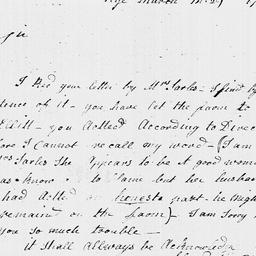 Sir
I Recd your letter by Mrs Sarles I find by
dence of it - you have let the farm to
Ellitt - you acted According to Direc
fore I Cannot recall my word - (I am
Mrs Sarles She appears to be a good woman
as know to blame but her husban
had acted an honest part he might
remaind on the farm) I am Sorry
you so much trouble -
it Shall Allways be Acknowledg